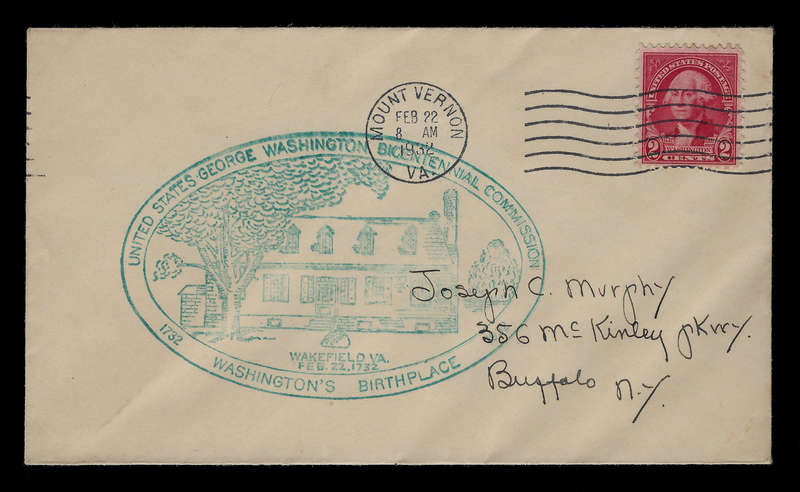 MOUNT VERNON
FEB 22
8 AM
1932
VA.
UNITED STATES POSTAGE
WASHINGTON
2 CENTS 2
UNITED STATES GEORGE WASHINGTON BICENTENNIAL COMMISSION
1732
WAKEFIELD VA.
FEB. 22, 1732
WASHINGTON'S BIRTHPLACE
Joseph C. Murphy
356 Mc Kinley pkwy.
Buffalo N.Y.